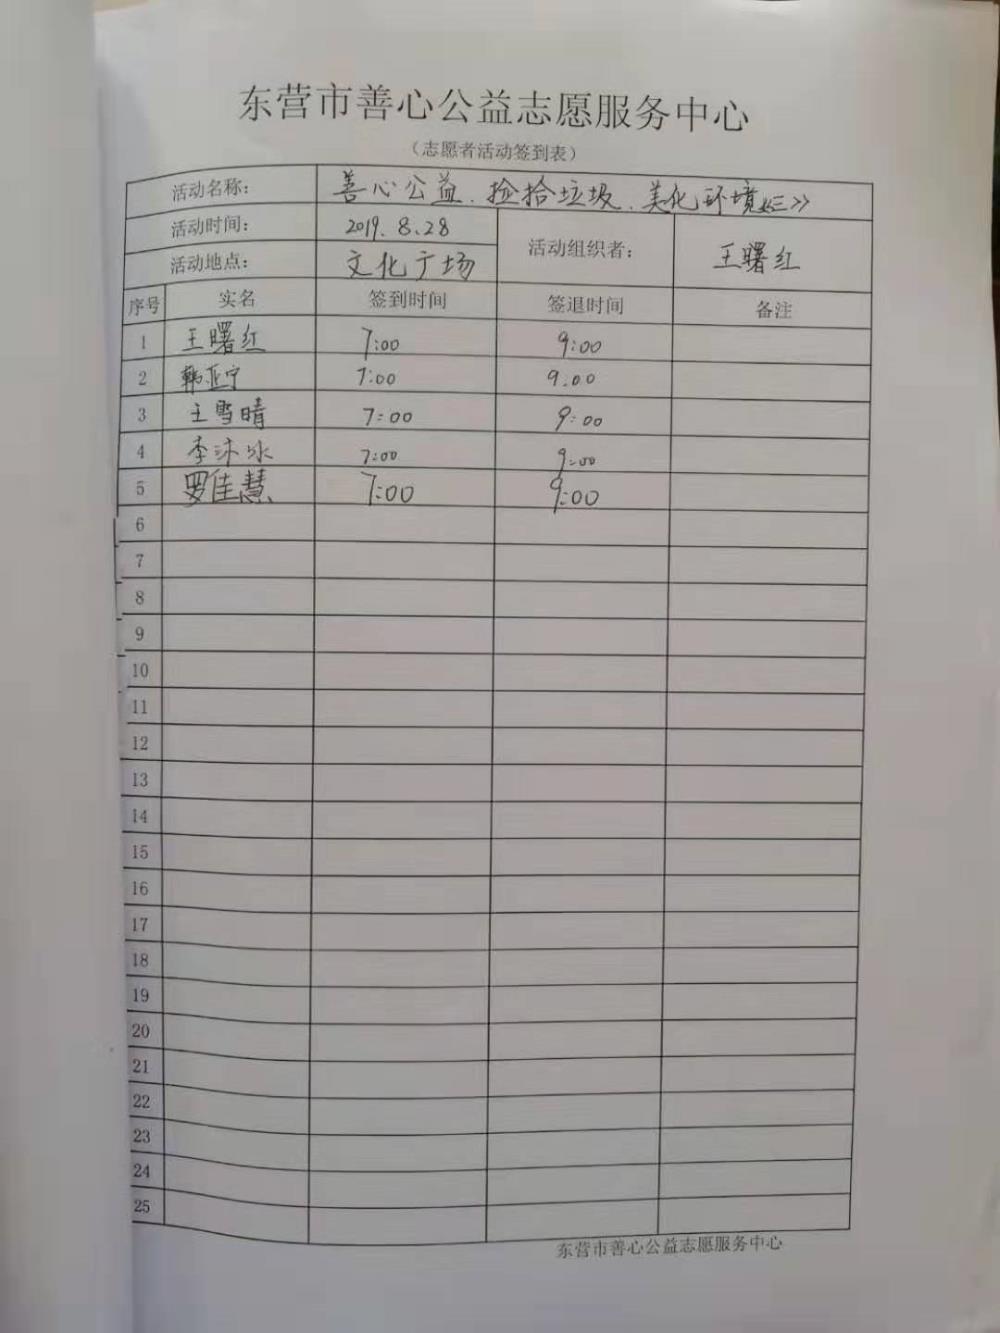 东营市善心公益志愿服务中心
（志愿者活动签到表）
活动名称： 善心公益、捡拾垃圾、美化环境
活动时间： 2019.8.28 活动组织者： 王曙红
活动地点： 文化广场
序号 实名 签到时间 签退时间 备注
1 王曙红 7:00 9:00
2 韩亚宁 7:00 9.00
3 王雪晴 7:00 9:00
4 李沐冰 7:00 9:00
5 罗佳慧 7:00 9:00
6
7
8
9
10
11
12
13
14
15
16
17
18
19
20
21
22
23
24
25
东营市善心公益志愿服务中心